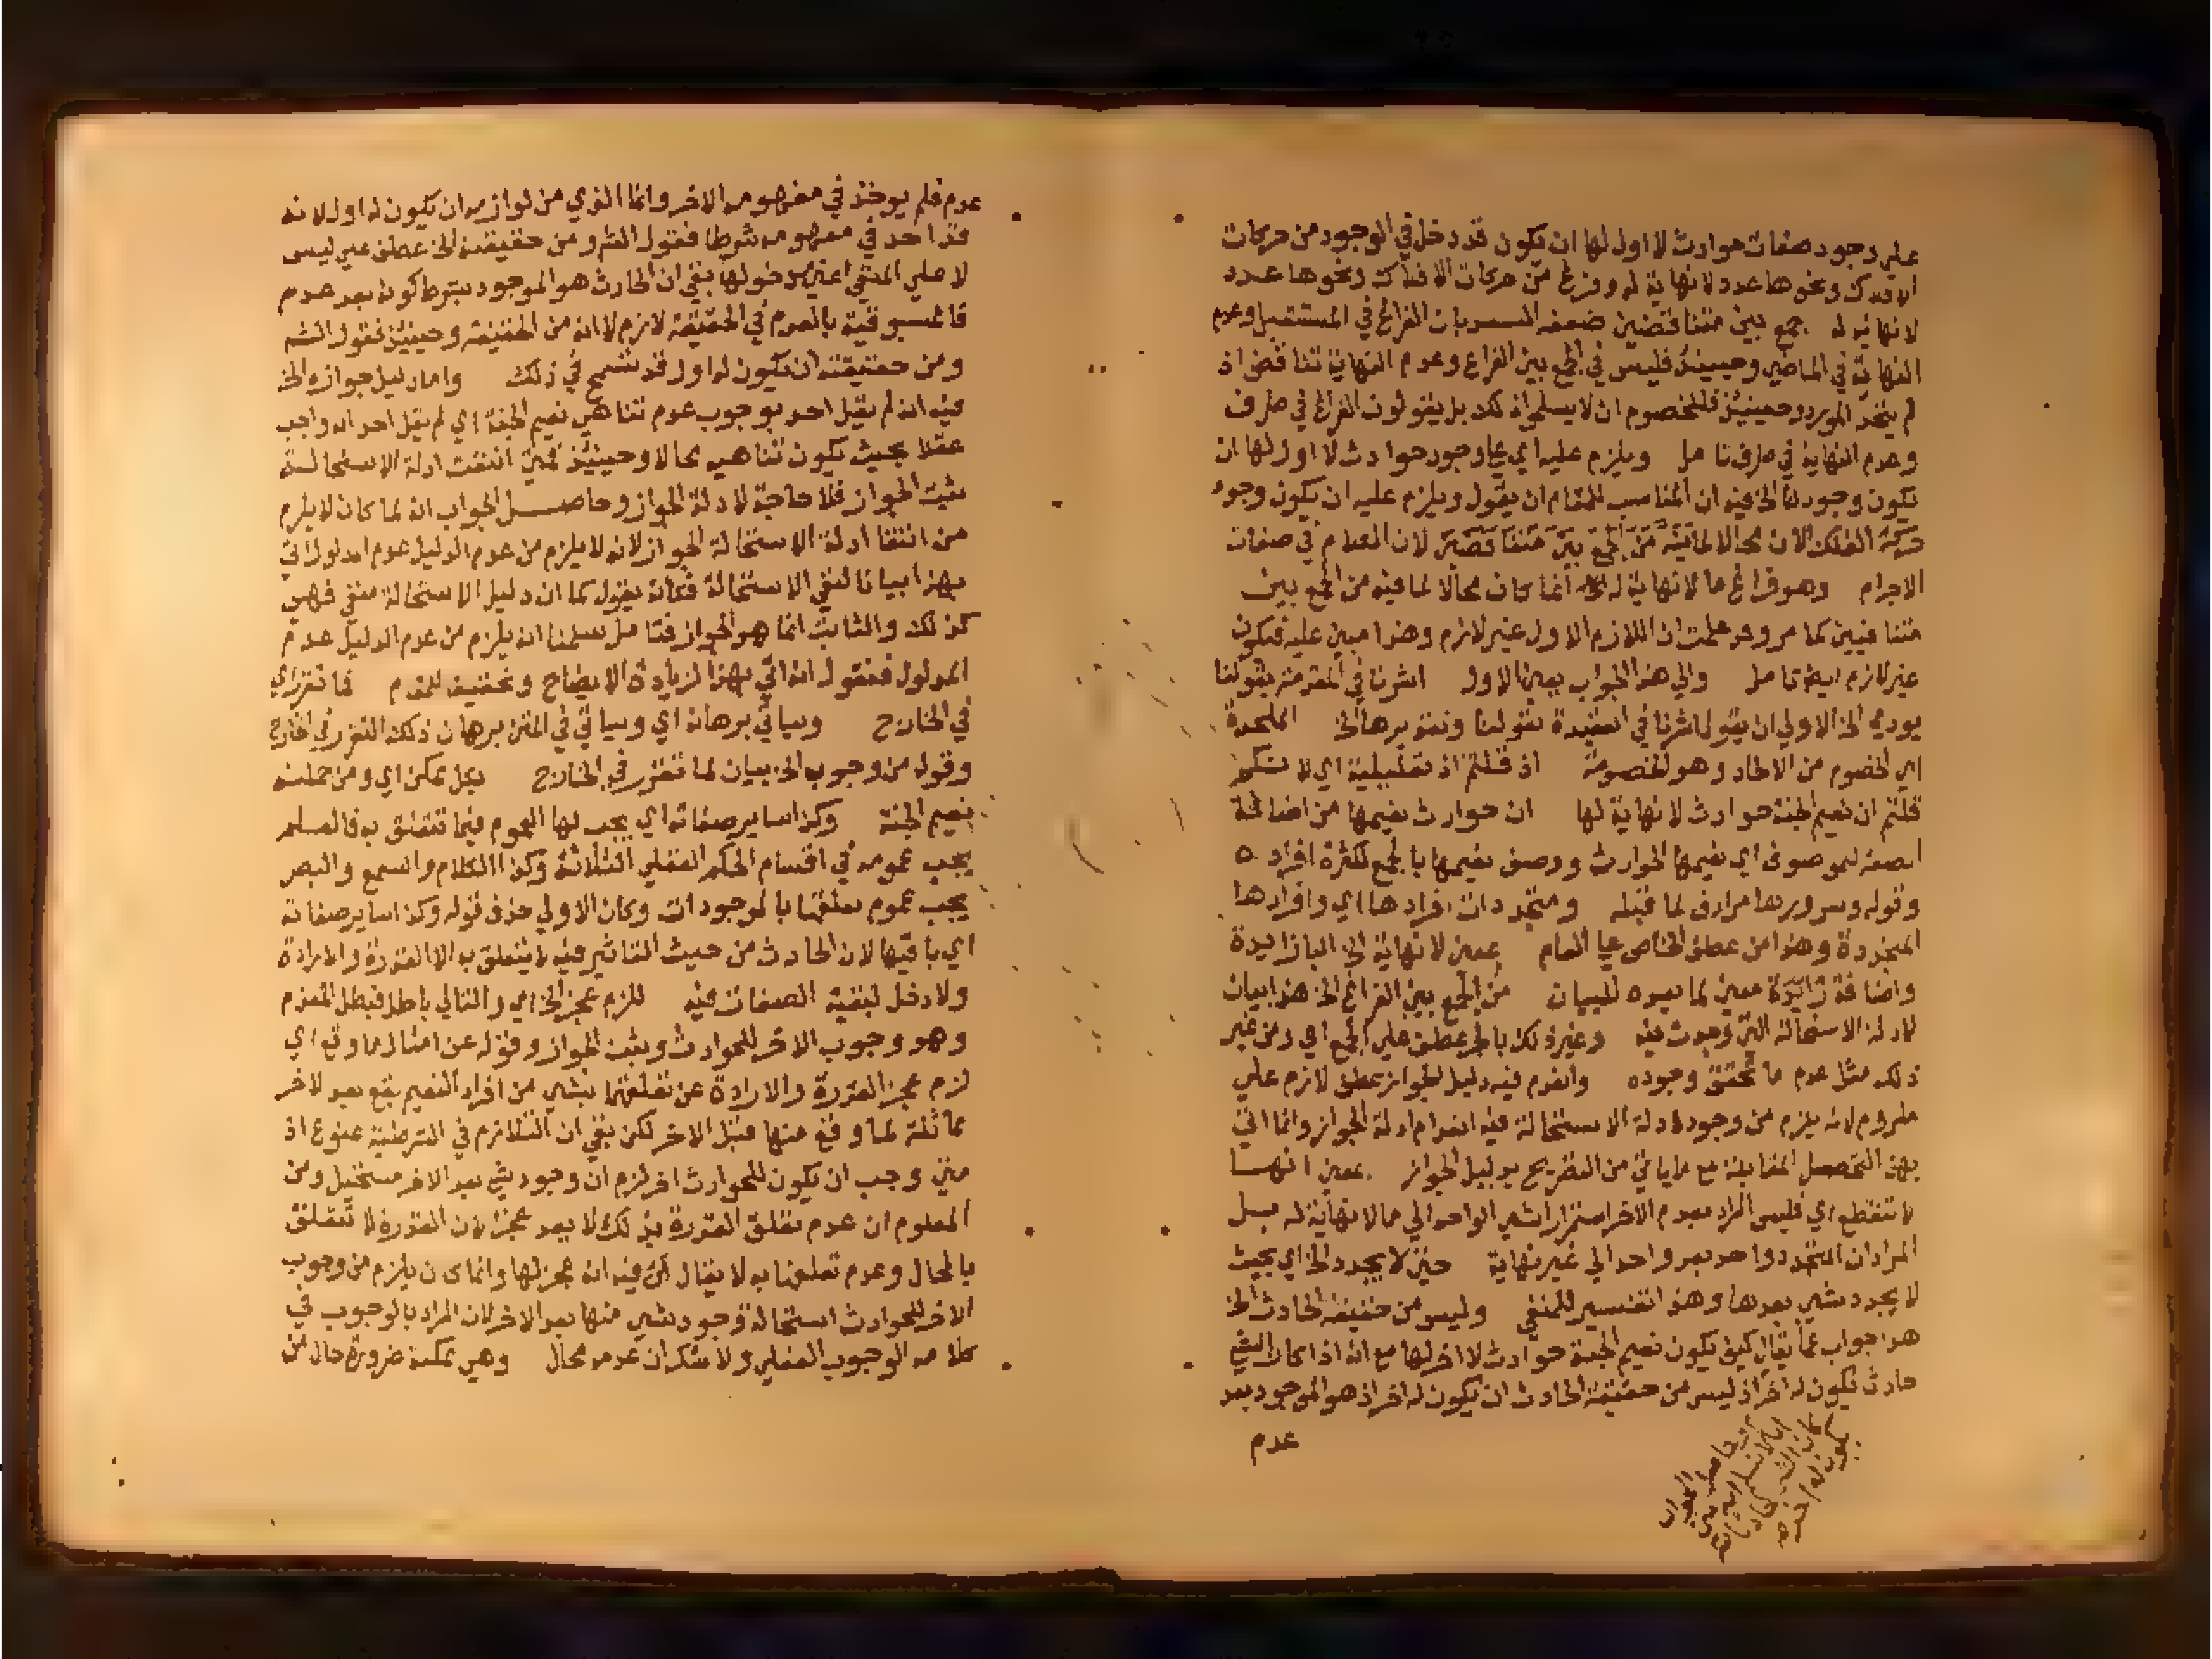 علي وجود صفات حوادث لا اول لها ان يكون قد دخل في الوجود من حركات
الافلاك ونحوها عدد لا نهاية له وفرغ من حركات الافلاك ونحوها عدد
لا نهاية له جمع بين متناقضين ضعفه بان الفراغ في المستقبل وعدم
النهاية في الماضي وحينئذ فليس في الجمع بين الفراغ وعدم النهاية تناقض اذ
لم يتحد المورد وحينئذ فللخصوم ان لا يسلموا ذلك بل يقولون الفراغ في طرف
وعدم النهاية في طرف تامل ويلزم عليه اي علي وجود حوادث لا اول لها ان
يكون وجودنا الخ فيه ان المناسب للمقام ان يقول ويلزم عليه ان يكون وجود
حركة الفلك الان محالا لما فيه من الجمع بين متناقضين لان الكلام في صفات
الاجرام وهو فراغ ما لا نهاية له انما كان محالا لما فيه من الجمع بين
متنافيين كما مر وقد علمت ان اللازم الاول غير لازم وهذا مبين عليه فيكون
غير لازم ايضا تامل والي هذا الجواب يعين الاول اشرنا في المقدمة بقولنا
يودي الخ الاولي ان يقول اشرنا في العقيدة بقولنا وتقديرها الخ الملحدة
اي الخصوم من الالحاد وهو الخصومة اذ قلتم اذ تعليلية اي لانكم
قلتم ان نعيم الجنة حوادث لا نهاية لها ان حوادث نعيمها من اضافة
الصفة للموصوف اي نعيمها الحوادث ووصف نعيمها بالجمع لكثرة افراده
وقوله وسرورها مرادف لما قبله ومتجددات افرادها اي وافرادها
المتجددة وهذا من عطف الخاص علي العام بمعين لا نهاية الخ البا زايدة
واضافة زايدة معين لما بعده للبيان من الجمع بين الفراغ الخ هذا بيان
لادلة الاستحالة التي وجدت فيه وغير ذلك بالجر عطف علي الجمع اي ومن غير
ذلك مثل عدم ما تحقق وجوده وانعدم فيه دليل الجواز عطف لازم علي
ملزوم لانه يلزم من وجود ادلة الاستحالة فيه انعدام ادلة الجواز وانما اتي
بهذا لتحصل المقابلة مع ما ياتي من التصريح بدليل الجواز بمعين انها
لا تنقطع اي فليس المراد بعدم الاخر استمرار الشي الواحد الي ما لا نهاية له بل
المراد ان المتجدد واحد بعد واحد الي غير نهاية حتي لا يجدد الخ اي بحيث
لا يجدد شي بعدها وهذا تفسير للمنفي وليس من حقيقة الحادث الخ
هذا جواب عما يقال كيف يكون نعيم الجنة حوادث لا اخر لها مع انه اذا كان الشي
حادث يكون له اخر اذ ليس من حقيقة الحادث ان يكون له اخر اذ هو الموجود بعد
عدم
عدم فلم يوخذ في مفهومه الاخر وانما الذي من لوازمه ان يكون له اول لانه
قد اخذ في مفهومه شرطا فقول الش ومن حقيقته الخ عطف علي ليس
لا علي المنفي اعني مدخولها بقي ان الحادث هو الموجود بشرط كونه بعد عدم
فالمسبوقية بالعدم في الحقيقة لازم لا انه من الحقيقة وحينئذ فقول الش
ومن حقيقته ان يكون له اول قد تسمح في ذلك واما دليل جوازه الخ
فيه انه لم يقل احد بوجوب عدم تناهي نعيم الجنة اي لم يقل احد انه واجب
عقلا بحيث يكون تناهيه محالا وحينئذ فمتي انتفت ادلة الاستحالة
ثبت الجواز فلا حاجة لادلة الجواز وحاصل الجواب انه لما كان لا يلزم
من انتفا ادلة الاستحالة الجواز لانه لا يلزم من عدم الدليل عدم المدلول اتي
بهذا بيانا لنفي الاستحالة فكانه يقول كما ان دليل الاستحالة منفي فهي
كذلك والثابت انما هو الجواز فتامل سلمنا انه يلزم من عدم الدليل عدم
المدلول فنقول انه اتي بهذا لزيادة الايضاح وتحقيق المقام لما تقرر اي
في الخارج وسياتي برهانه اي وسياتي في المتن برهان ذلك التقرر في الخارج
وقوله من وجوب الخ بيان لما تقرر في الخارج بكل ممكن اي ومن جملته
نعيم الجنة وكذا ساير صفاته اي يجب لها العموم فيما تتعلق به فالعلم
يجب عمومه في اقسام الحكم العقلي الثلاثة وكذا الكلام والسمع والبصر
يجب عموم تعلقها بالموجودات وكان الاولي حذف قوله وكذا ساير صفاته
اي باقيها لان الحادث من حيث التاثير فيه لا يتعلق به الا القدرة والارادة
ولا دخل لبقية الصفات فيه للزم عجز الخ اي والتالي باطل فبطل المقدم
وهو وجوب الاخر للحوادث وثبت الجواز وقوله عن امثال ما وقع اي
لزم عجز القدرة والارادة عن تعلقهما بشي من افراد النعيم يقع بعد الاخر
مماثلة لما وقع منها قبل الاخر لكن بقي ان التلازم في الشرطية ممنوع اذ
متي وجب ان يكون للحوادث اخر لزم ان وجود شي بعد الاخر مستحيل ومن
المعلوم ان عدم تعلق القدرة بذلك لا يعد عجزا لان القدرة لا تتعلق
بالمحال وعدم تعلقها به لا يقال فيه انه عجز لها وانما كان يلزم من وجوب
الاخر للحوادث استحالة وجود شي منها بعد الاخر لان المراد بالوجوب في
كلامه الوجوب العقلي ولا شك ان عدمه محال وهي ممكنة ضرورة حال من